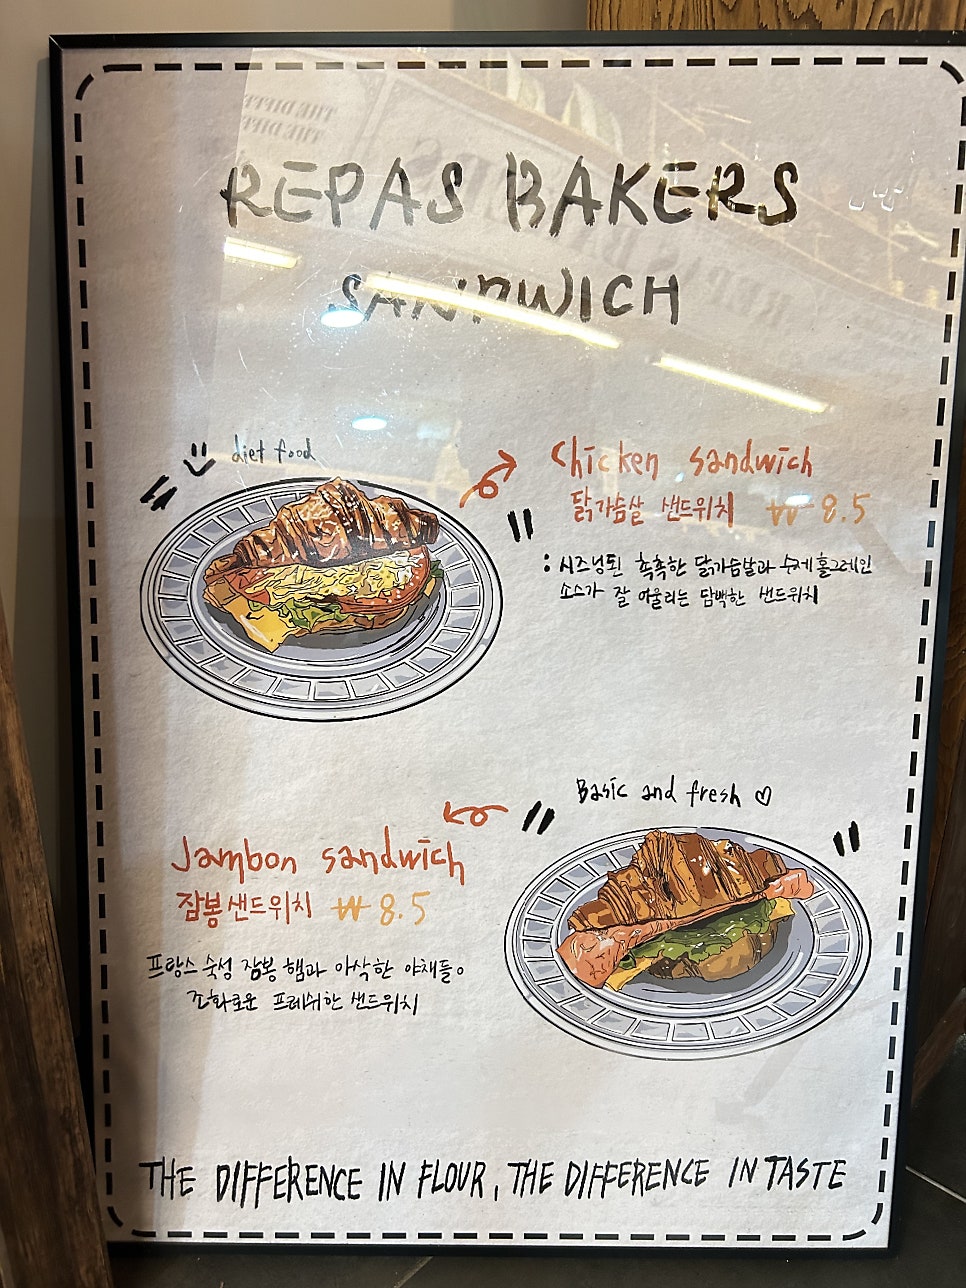 REPAS BAKERS
SANDWICH
diet food
Chicken sandwich
닭가슴살 샌드위치 ₩ 8.5
: 시즈닝된 촉촉한 닭가슴살과 수제 홀그레인
소스가 잘 어울리는 담백한 샌드위치
Basic and fresh ♡
Jambon sandwich
잠봉샌드위치 ₩ 8.5
프랑스 숙성 잠봉 햄과 아삭한 야채들이
조화로운 프레쉬한 샌드위치
THE DIFFERENCE IN FLOUR, THE DIFFERENCE IN TASTE